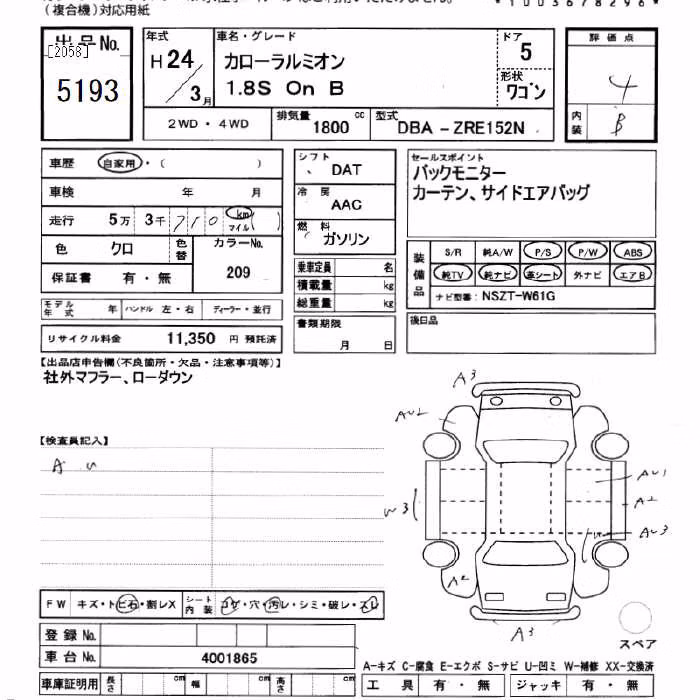 (複合機)対応用紙
出品No.
[2058]
5193
年式
H 24
3 月
車名・グレード
カローラルミオン
1.8S On B
ドア
5
形状
ワゴン
2WD・4WD
排気量
1800 cc
型式
DBA-ZRE152N
評価点
4
内装
B
車歴
自家用・( )
車検 年 月
走行 5万 3千 710 km ( )
マイル
色 クロ
色替
カラーNo.
209
保証書 有・無
モデル年式 年
ハンドル 左・右
ディーラー・並行
リサイクル料金 11,350 円 預託済
シフト
DAT
冷房
AAC
燃料
ガソリン
乗車定員 名
積載量 kg
総重量 kg
書類期限
月 日
セールスポイント
バックモニター
カーテン、サイドエアバッグ
装備品
S/R 純A/W P/S P/W ABS
純TV 純ナビ 革シート 外ナビ エアB
ナビ型番: NSZT-W61G
後日品
【出品店申告欄(不良箇所・欠品・注意事項等)】
社外マフラー、ローダウン
【検査員記入】
A U
A3
AU1
AU1
W3
A2
AU3
A2
A3
FW キズ・トビ石・割レX
シート内装 コゲ・穴・汚レ・シミ・破レ・スレ
登録No.
車台No. 4001865
車庫証明用 長さ cm 幅 cm 高さ cm
スペア
A-キズ C-腐食 E-エクボ S-サビ U-凹ミ W-補修 XX-交換済
工具 有・無 ジャッキ 有・無